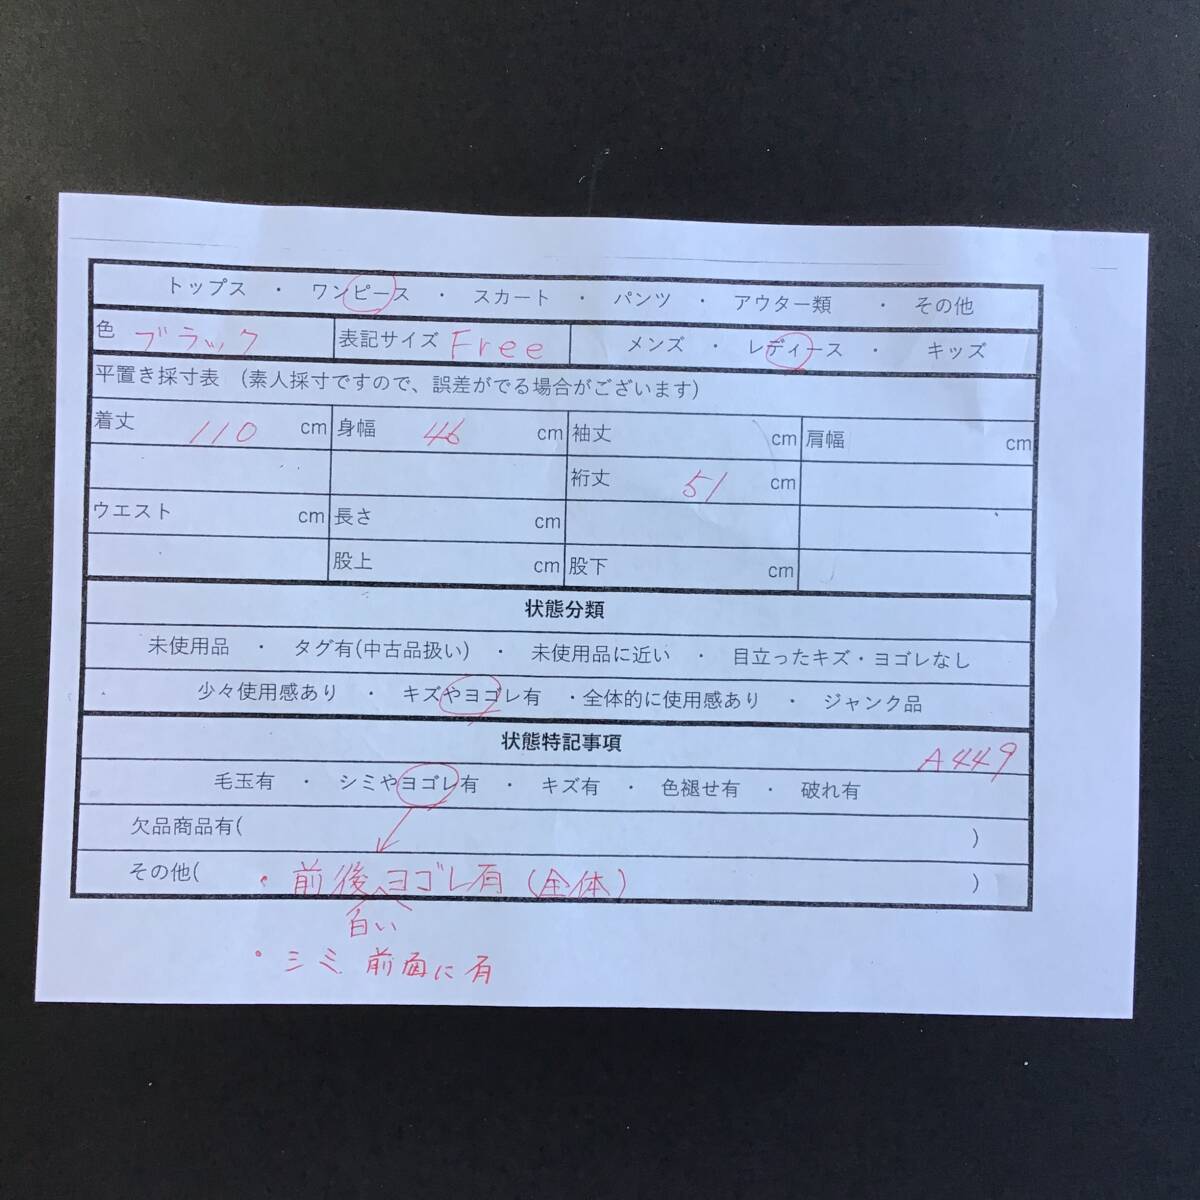 トップス ・ ワンピース ・ スカート ・ パンツ ・ アウター類 ・ その他
色 ブラック 表記サイズ Free メンズ ・ レディース ・ キッズ
平置き採寸表 (素人採寸ですので、誤差がでる場合がございます)
着丈 110 cm 身幅 46 cm 袖丈 cm 肩幅 cm
裄丈 51 cm
ウエスト cm 長さ cm
股上 cm 股下 cm
状態分類
未使用品 ・ タグ有(中古品扱い) ・ 未使用品に近い ・ 目立ったキズ・ヨゴレなし
少々使用感あり ・ キズやヨゴレ有 ・全体的に使用感あり ・ ジャンク品
状態特記事項 A449
毛玉有 ・ シミやヨゴレ有 ・ キズ有 ・ 色褪せ有 ・ 破れ有
欠品商品有( )
その他( ・前後ヨゴレ有(全体) )
白い
・シミ 前面に有